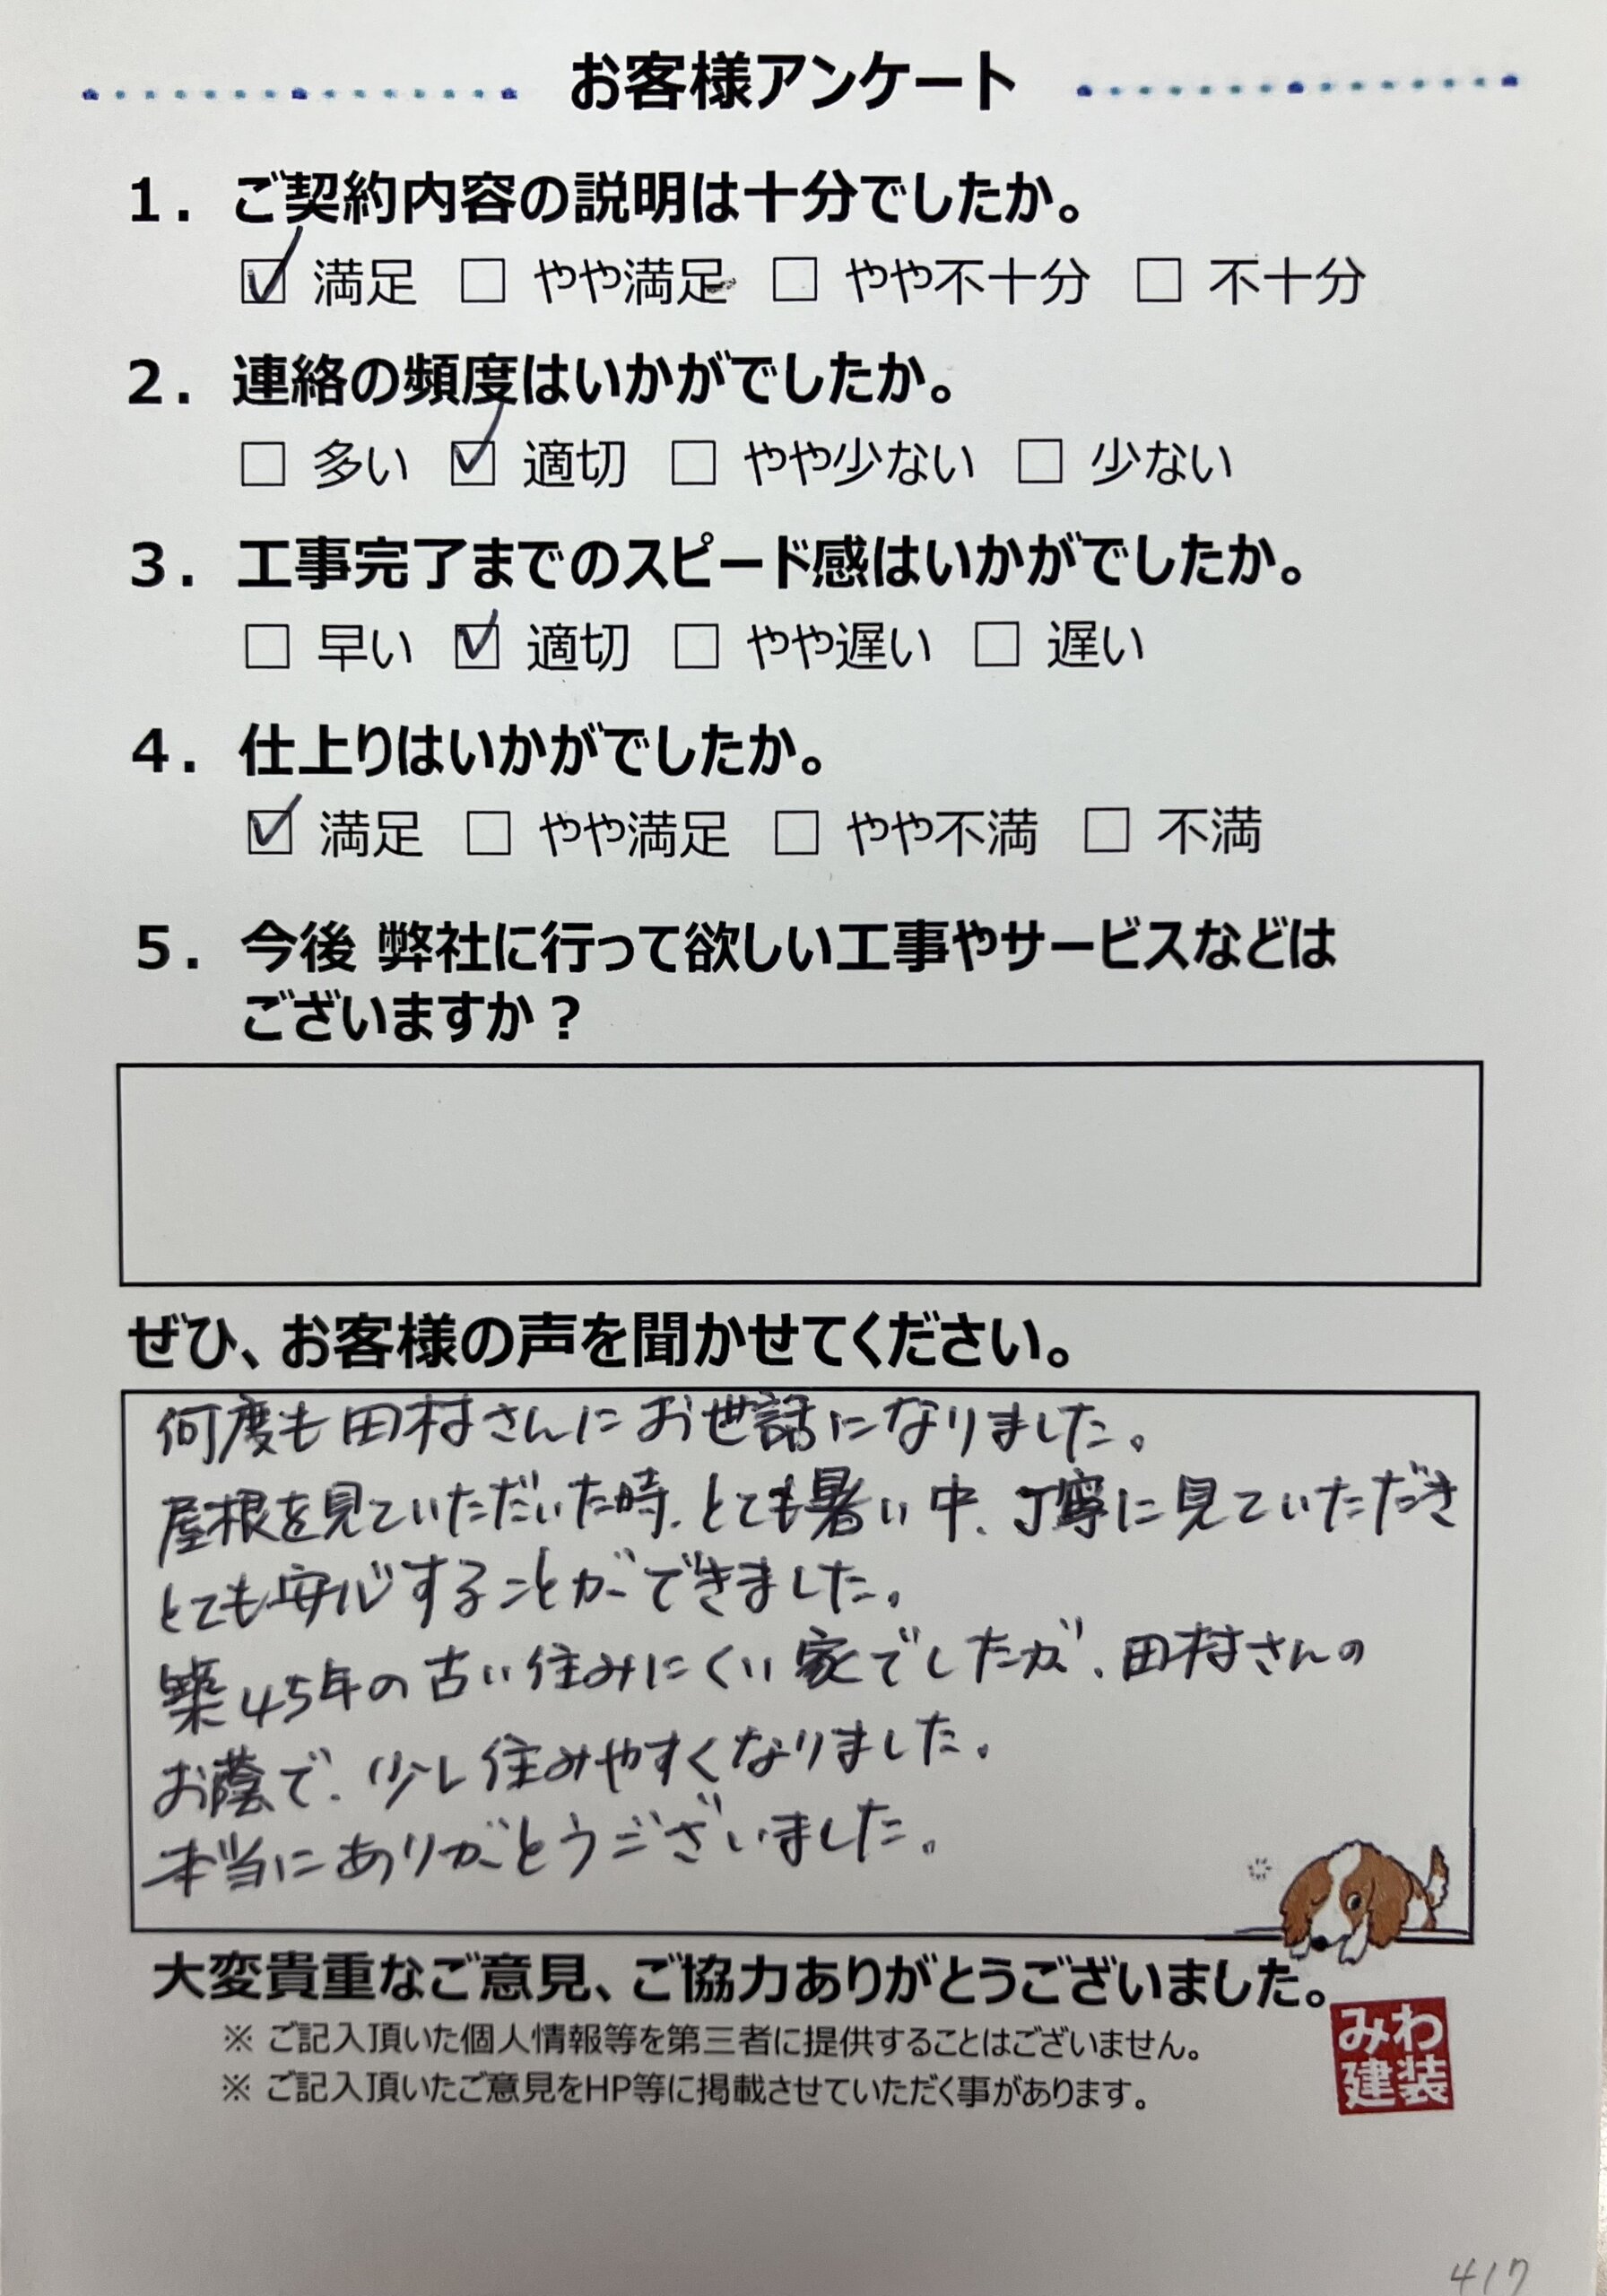 お客様アンケート
1. ご契約内容の説明は十分でしたか。
☑ 満足 □ やや満足 □ やや不十分 □ 不十分
2. 連絡の頻度はいかがでしたか。
□ 多い ☑ 適切 □ やや少ない □ 少ない
3. 工事完了までのスピード感はいかがでしたか。
□ 早い ☑ 適切 □ やや遅い □ 遅い
4. 仕上りはいかがでしたか。
☑ 満足 □ やや満足 □ やや不満 □ 不満
5. 今後 弊社に行って欲しい工事やサービスなどは
ございますか？
ぜひ、お客様の声を聞かせてください。
何度も田村さんにお世話になりました。
屋根を見ていただいた時、とても暑い中、丁寧に見ていただき
とても安心することができました。
築45年の古い住みにくい家でしたが、田村さんの
お蔭で、少し住みやすくなりました。
本当にありがとうございました。
大変貴重なご意見、ご協力ありがとうございました。
※ ご記入頂いた個人情報等を第三者に提供することはございません。
※ ご記入頂いたご意見をHP等に掲載させていただく事があります。
みわ
建装
417